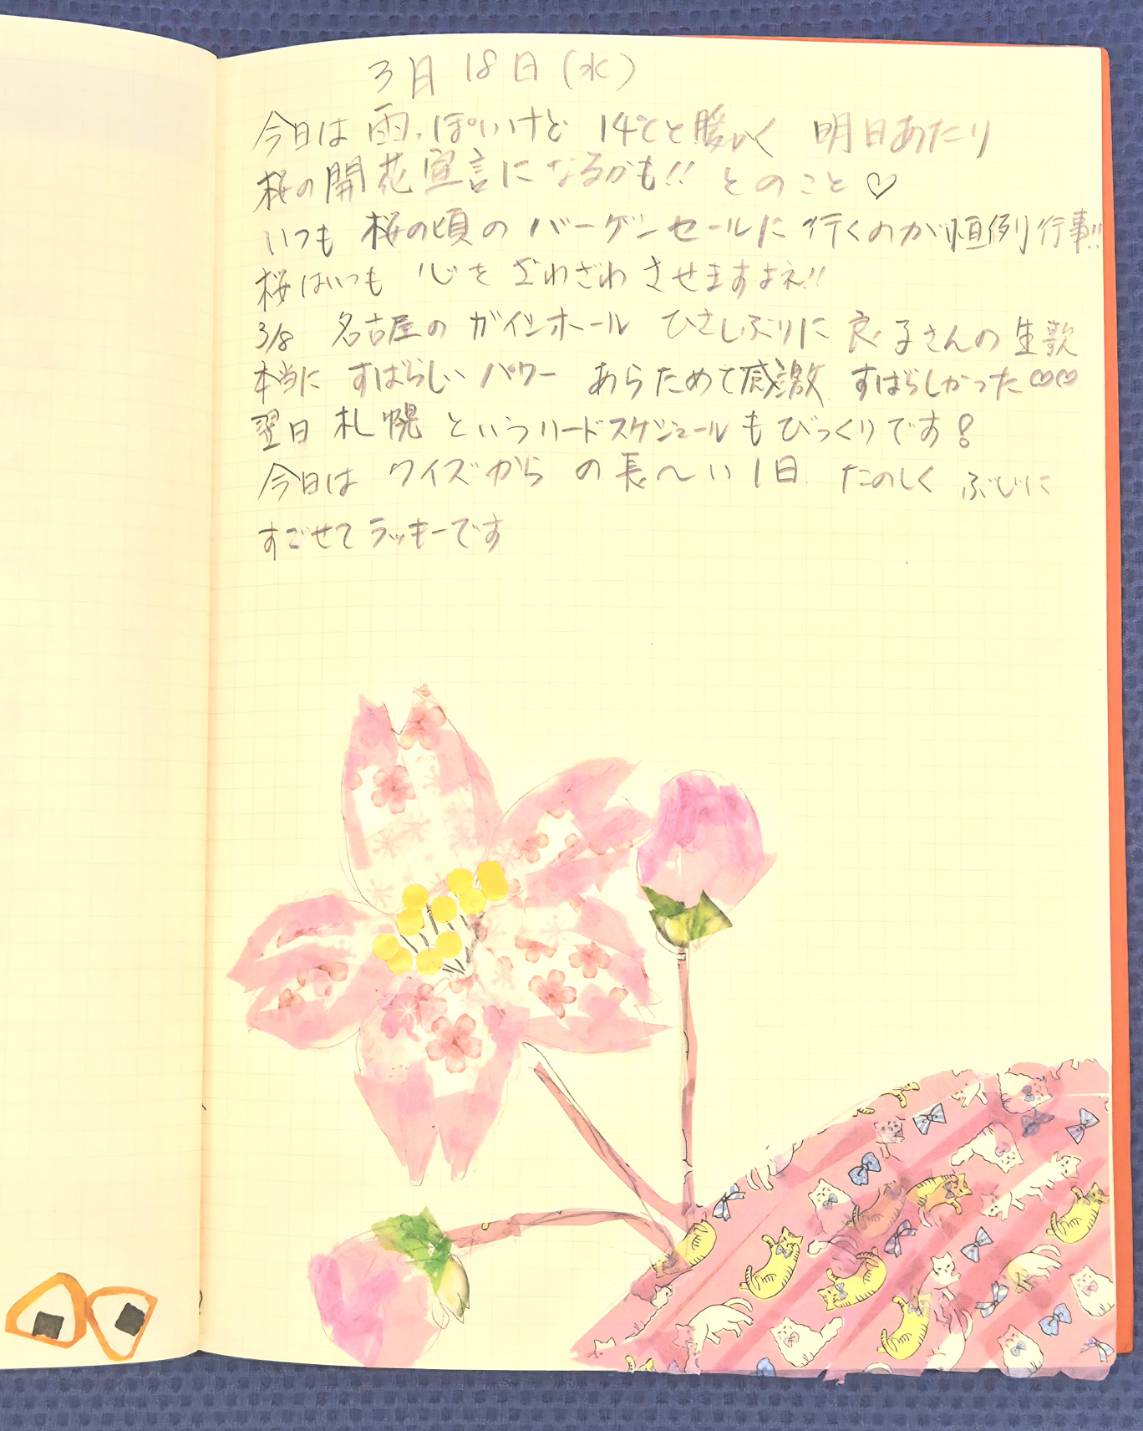 3月18日(水)
今日は雨っぽいけど 14℃と暖かく 明日あたり
桜の開花宣言になるかも!! とのこと♡
いつも 桜の頃の バーゲンセールに 行くのが恒例行事!!
桜はいつも 心を ざわざわ させますよネ!!
3/8 名古屋の ガイシホール ひさしぶりに 良子さんの 生歌
本当に すばらしい パワー あらためて感激 すばらしかった♡♡
翌日 札幌 というハードスケジュールも びっくりです!
今日は クイズから の 長〜い1日 たのしく ぶじに
すごせて ラッキーです